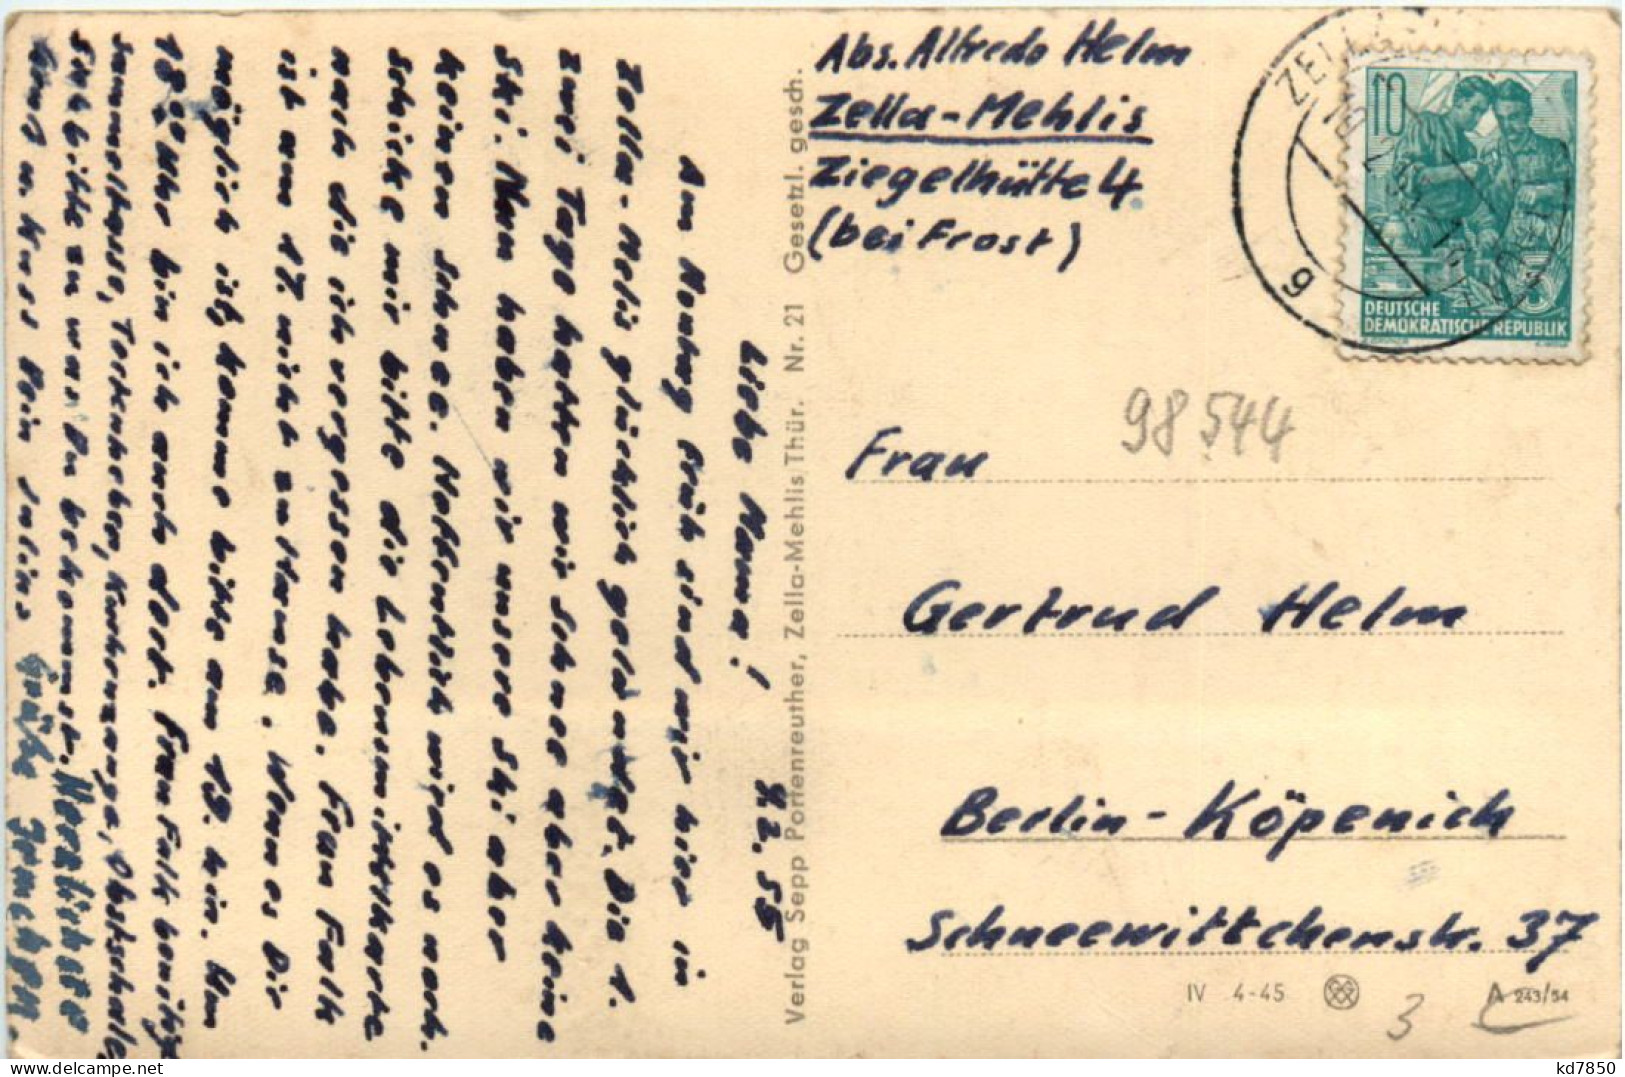 Abs. Alfredo Helm
Zella-Mehlis
Ziegelhütte 4.
(bei Frost)
10
DEUTSCHE
DEMOKRATISCHE REPUBLIK
98544
Frau
Gertrud Helm
Berlin-Köpenick
Schneewittchenstr. 37
IV 4-45
A 243/54
3
Verlag Sepp Portenreuther, Zella-Mehlis Thür. Nr. 21 Gesetzl. gesch.
2.55
Liebe Mama!
Am Montag früh sind wir hier in
Zella-Melis glücklich gelandet. Die 1.
zwei Tage hatten wir schnee aber keine
Ski. Nun haben wir unsere Ski aber
keinen schnee. Hoffentlich wird es noch.
schicke mir bitte die Lebensmittelkarte
nach die ich vergessen habe. Frau Falk
ist am 17. nicht zu Hause. Wenn es Dir
möglich ist, komme bitte am 19. hin. Um
18 00 Uhr bin ich auch dort. Frau Falk benötigt
Sammeltasse, Tortenheber, Kuchenzange, Obstschale
Sieh bitte zu was Du bekommst. Herzlichste
Gruß u. Kuss Dein
Grüße